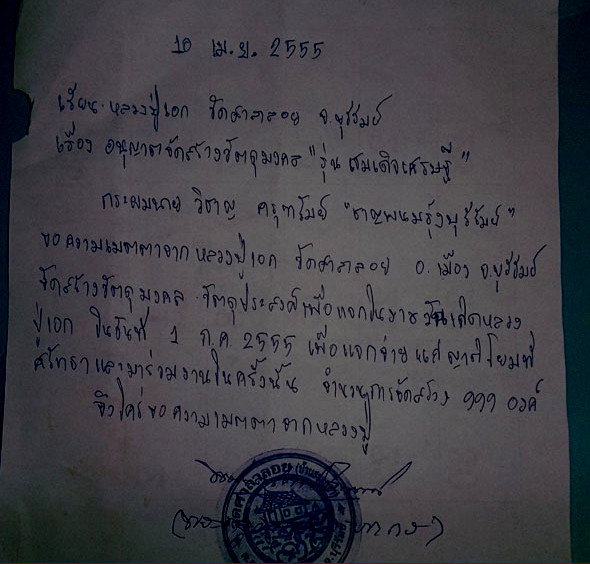 10 เม.ย. 2555
เรียน หลวงปู่เอก วัดศาลาลอย จ.บุรีรัมย์
เรื่อง อนุญาตจัดสร้างวัตถุมงคล "รุ่น สมเด็จเศรษฐี"
กระผมนาย วิชาญ "ชาญพนมรุ้งบุรีรัมย์"
ขอความเมตตาจากหลวงปู่เอก วัดศาลาลอย อ.เมือง จ.บุรีรัมย์
จัดสร้างวัตถุมงคล วัตถุประสงค์เพื่อแจกในงานวันเกิดหลวง
ปู่เอก ในวันที่ 1 ก.ค. 2555 เพื่อแจกจ่ายแก่ญาติโยมที่
ศรัทธาและมาร่วมงานในครั้งนั้น จำนวนการจัดสร้าง 999 องค์
จึงใคร่ขอความเมตตาจากหลวงปู่
วัดศาลาลอย